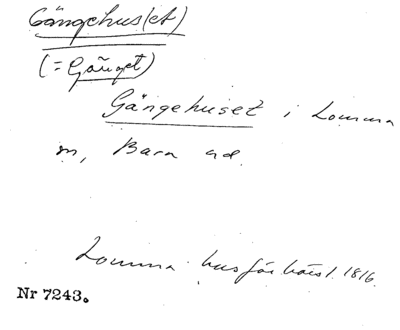 Gängehus(et)
(= Gånget)
Gängehuset i Lomma
sn, Bara hd.
Lomma husförhörsl. 1816.
Nr 7243.